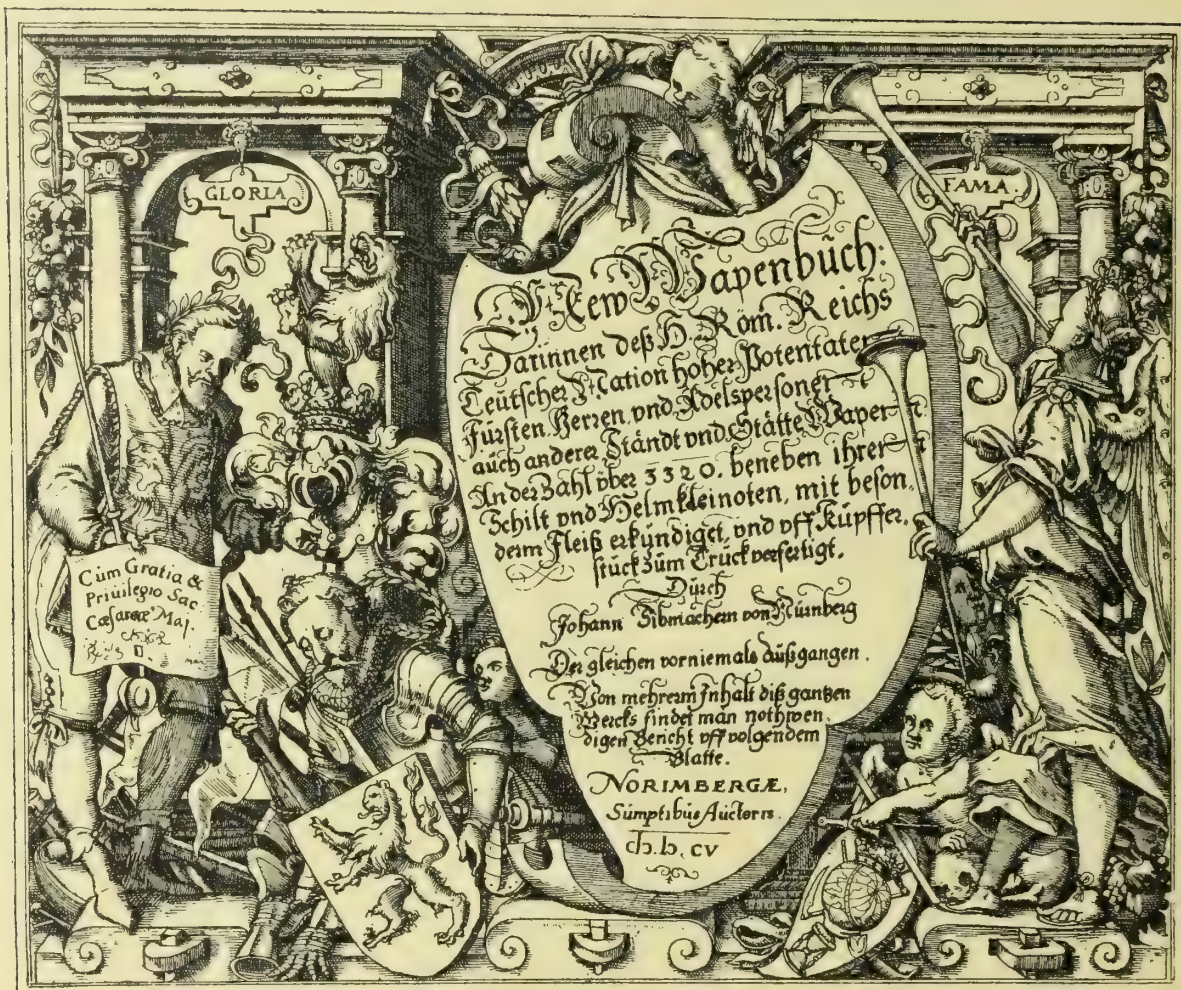 GLORIA.
FAMA.
New Wapenbuch:
Darinnen deß H. Röm. Reichs
Teutscher Nation hoher Potentaten
Fürsten. Herren vnd Adelspersonen
auch anderer Ständt vnd Stätte Wapen
An der Zahl vber 3320. beneben ihren
Schilt vnd Helmkleinoten, mit beson,
derm Fleiß erkündiget, vnd vff Kupffer,
stück zum Truck verfertigt.
Durch
Johann Sibmachern von Nürnberg
Der gleichen vor niemals außgangen.
Von mehrerm Inhalt diß gantzen
Wercks findet man nothwen,
digen Bericht vff volgendem
Blatte.
NORIMBERGÆ,
Sumptibus Auctoris.
cIɔ. Iɔ. CV
Cum Gratia &
Priuilegio Sac.
Cæsareæ Maj.